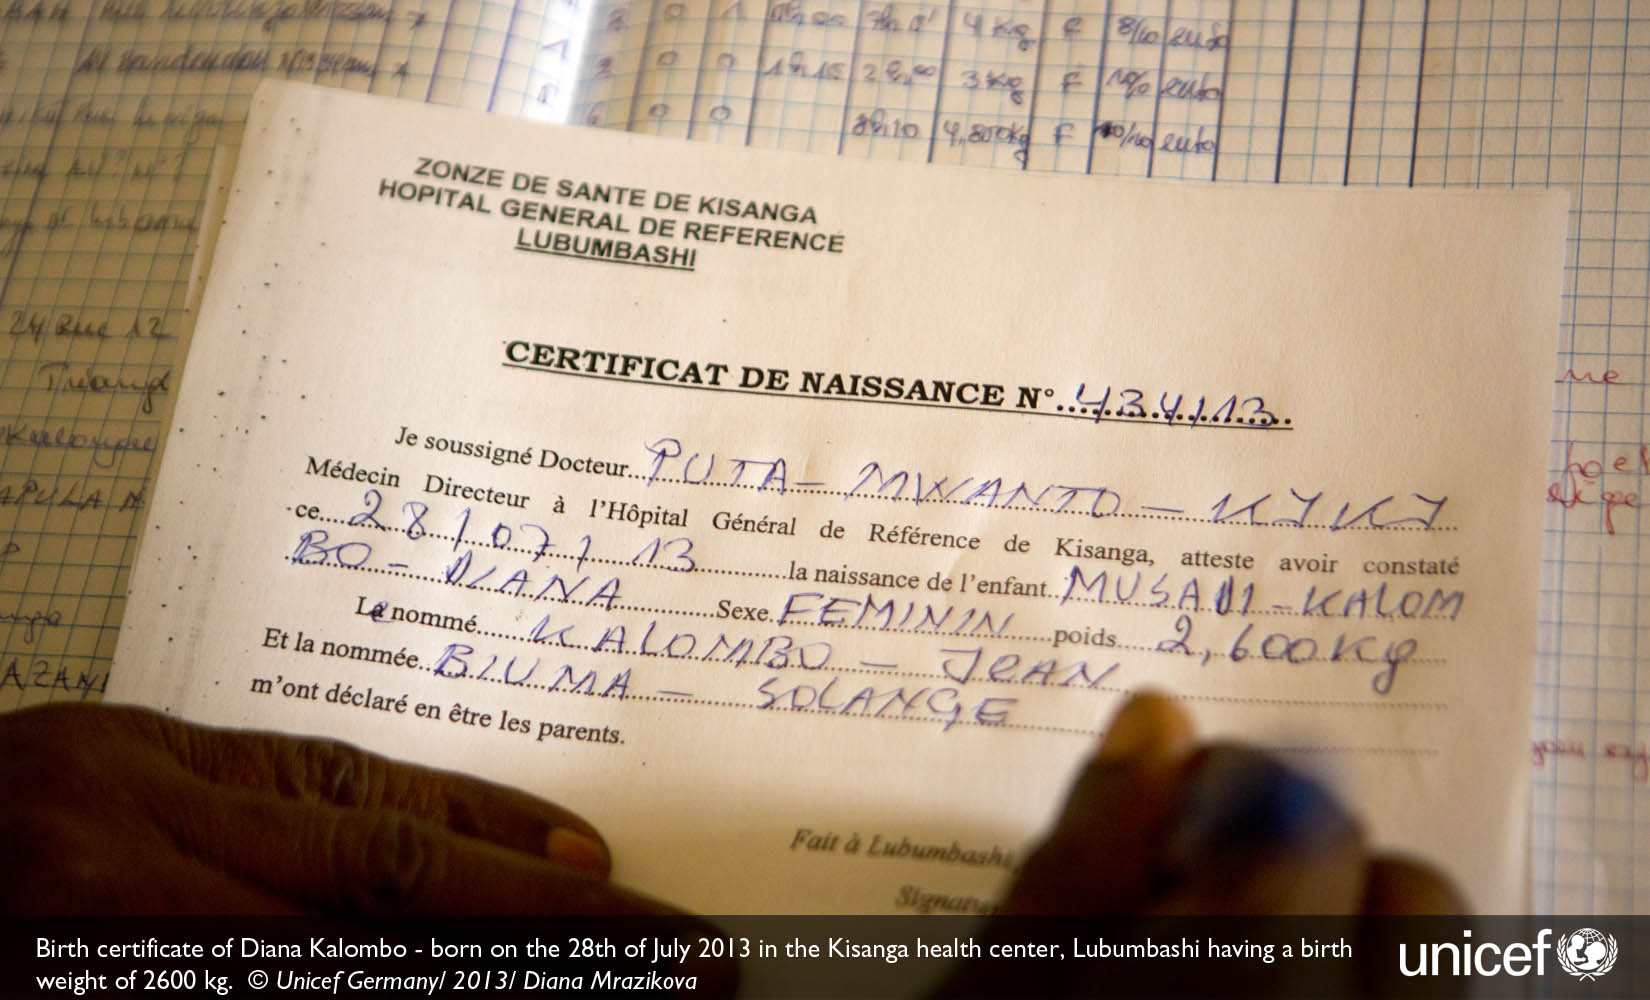 2 0 1 4 Kg F 8/10 euto
3 0 0 1h15 3 Kg F 10/0 euto
0 0 8h10 4,800kg F 10/10 euto
ZONZE DE SANTE DE KISANGA
HOPITAL GENERAL DE REFERENCE
LUBUMBASHI
24 Rue 12
CERTIFICAT DE NAISSANCE N°....434/13..
Je soussigné Docteur...PUTA - MWANTO - KYKY
Médecin Directeur à l'Hôpital Général de Référence de Kisanga, atteste avoir constaté
ce....28/07/13............la naissance de l'enfant..MUSADI - KALOM
BO - DIANA.............Sexe.FEMININ......poids....2,600Kg
Le nommé......KALOMBO - JEAN
Et la nommée..BIUMA - SOLANGE
m'ont déclaré en être les parents.
Fait à Lubumbashi,
Signatu
Birth certificate of Diana Kalombo - born on the 28th of July 2013 in the Kisanga health center, Lubumbashi having a birth
weight of 2600 kg. © Unicef Germany/ 2013/ Diana Mrazikova
unicef